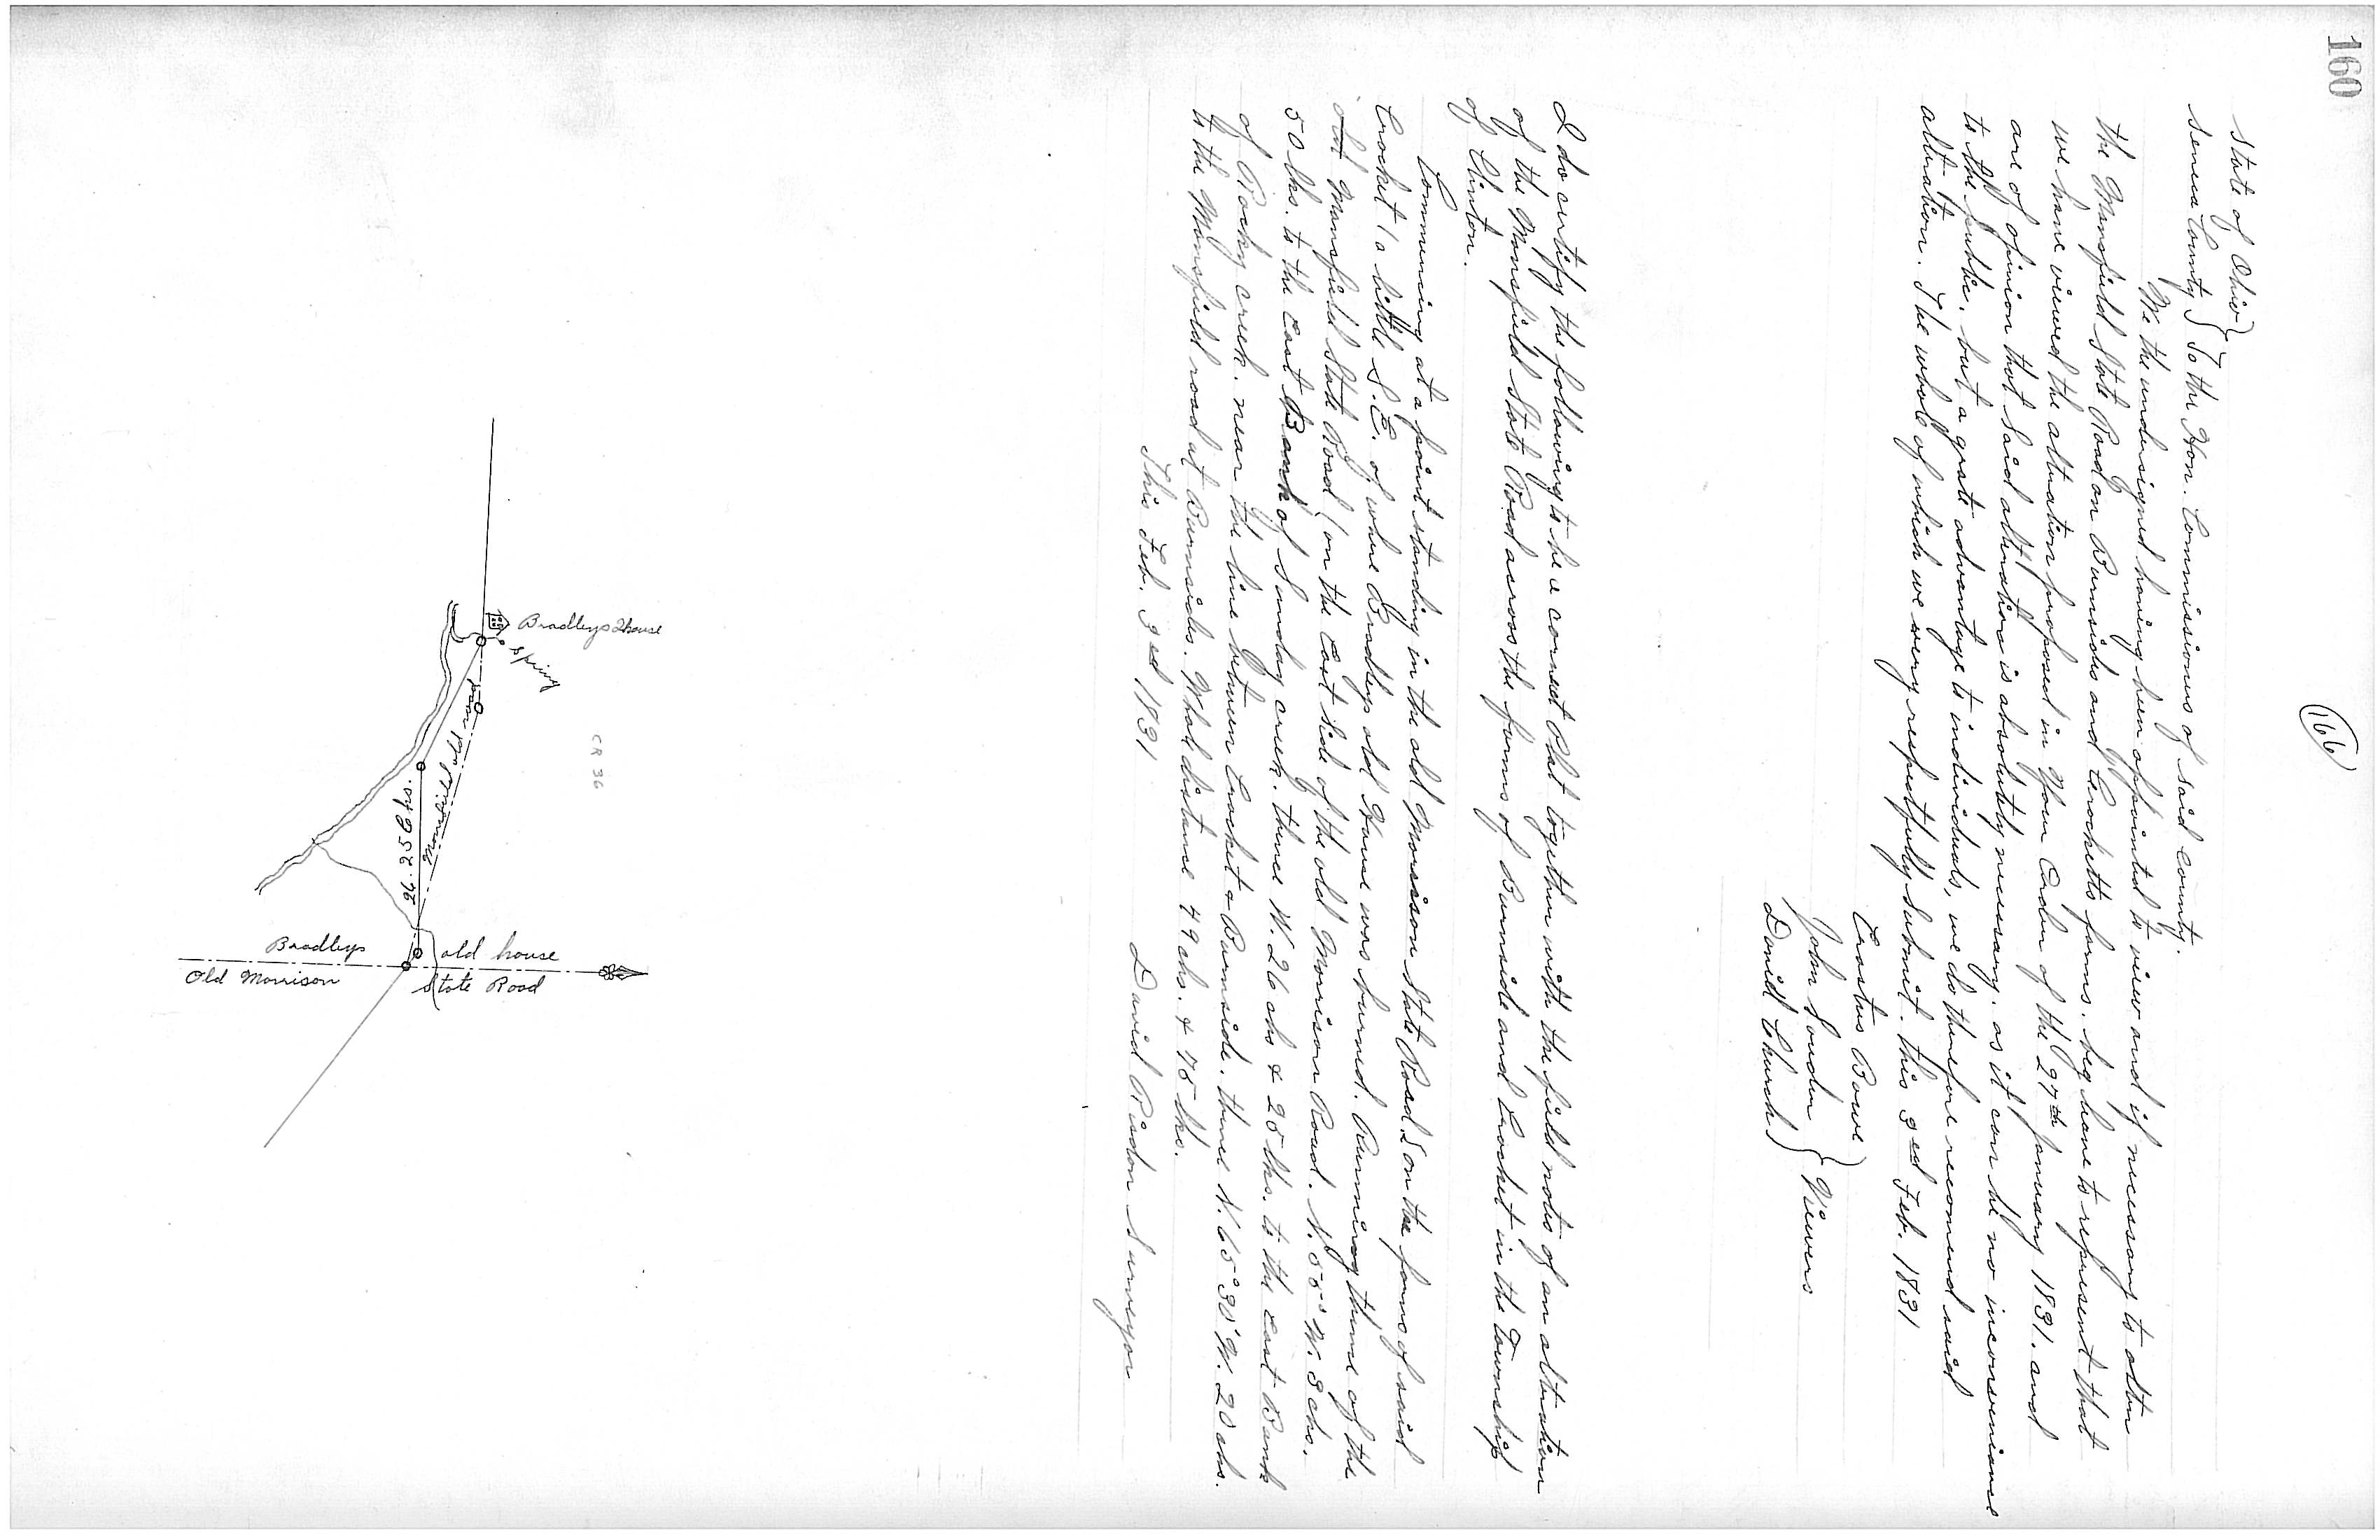 160
166
State of Ohio }
Seneca County } To the Hon. Commissioners of said County.
We the undersigned having been appointed to view and if necessary to alter
the Mansfield State Road on Burnsides and Crocketts farms. beg leave to represent that
we have viewed the altration proposed in your order of the 27th January 1831. and
are of opinion that said altration is absolutely necessary. as it can be no inconvenience
to the public. but a grate advantage to individuals, we do therefore recommend said
altration. The whole of which we very respectfully submit. this 3ed Feb. 1831
Erastus Bowe }
John Souder } Viewers
David Church }
I do certify the following to be a correct Plat together with the field notes of an altration
of the Mansfield State Road across the farms of Burnside and Crocket in the Township
of Clinton.
Commencing at a point standing in the old Morrison State Road & on the farms of said
Crocket (a little S.E. of where Bradleys old House was burned. Running thence of the
old Mansfield State Road (on the East side of the old Morrison Road. N. 55° W. 3 chs.
50 lks. to the East Bank of Sunday creek. thence N. 26 chs & 25 lks. to the East Bank
of Rocky creek. near the line between Crocket & Burnside. thence N. 65° 30' W. 20 chs.
to the Mansfield road at Burnsides. Whole distance 49 chs. & 75 lks.
This Feb. 3ed 1831
David Risdon Surveyor
CR 36
Bradleys house
Spring
N. 26. 25 chs.
Bradleys old house
Old Morrison State Road